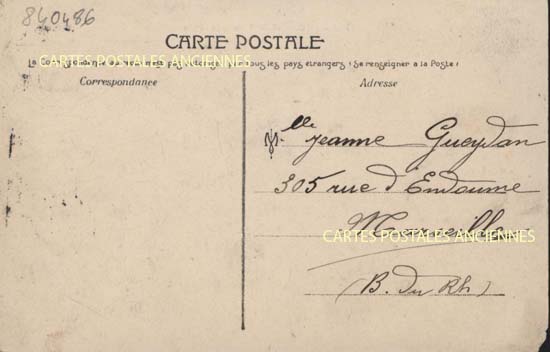 840486
CARTE POSTALE
CARTES POSTALES ANCIENNES
La Correspondance pas les pays étrangers (Se renseigner à la Poste)
Correspondance
Adresse
Mlle Jeanne Gueydan
305 rue d'Endoume
Marseille
CARTES POSTALES ANCIENNES
(B. du Rh)